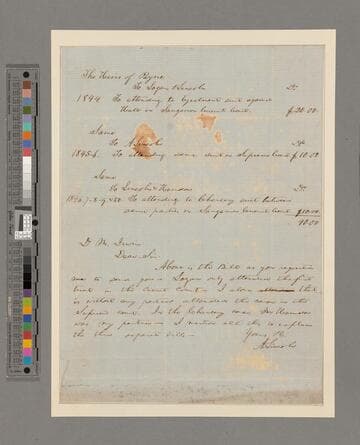 The Heirs of Payne
To Logan & Lincoln Dr
1844 To attending to Ejectment suit against
Hall in Sangamon Circuit Court $20.00
Same
To A. Lincoln Dr
1845-6 To attending same suit in Supreme Court $10.00
Same
To Lincoln & Herndon Dr
To attending to Chancery suit between
same parties in Sangamon Circuit Court $10.00
40.00
Dr. M.
Dear Sir.
Above is the Bill as you requested
me to send you— Logan only attended the first
trial in the Circuit Court— I alone that
is without any partner attended the case in the
Supreme Court. In the Chancery case Mr Herndon
was my partner— I mention all this to explain
the three separate bills—
Yours &c
A. Lincoln